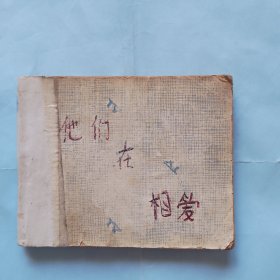 他们
在
相爱